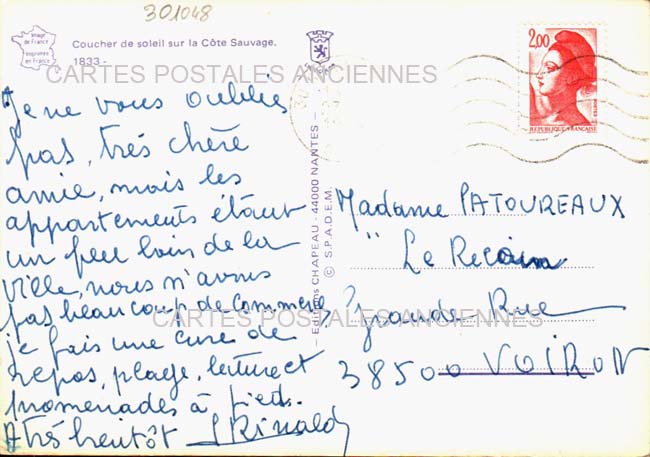 301048
Image de France
Imprimée en France
Coucher de soleil sur la Côte Sauvage.
1833 -
CARTES POSTALES ANCIENNES
2,00
REPUBLIQUE FRANÇAISE
Je ne vous oublie
pas, très chère
amie, mais les
appartements étant
un peu loin de la
ville, nous n'avons
pas beaucoup de commerces,
je fais une cure de
repos, plage, lecture et
promenades à pied.
A très bientôt Rinaldi
Editions CHAPEAU - 44000 NANTES -
© S.P.A.D.E.M.
Madame PATOUREAUX
"Le Recoin
2 Grande Rue
38500 VOIRON
CARTES POSTALES ANCIENNES